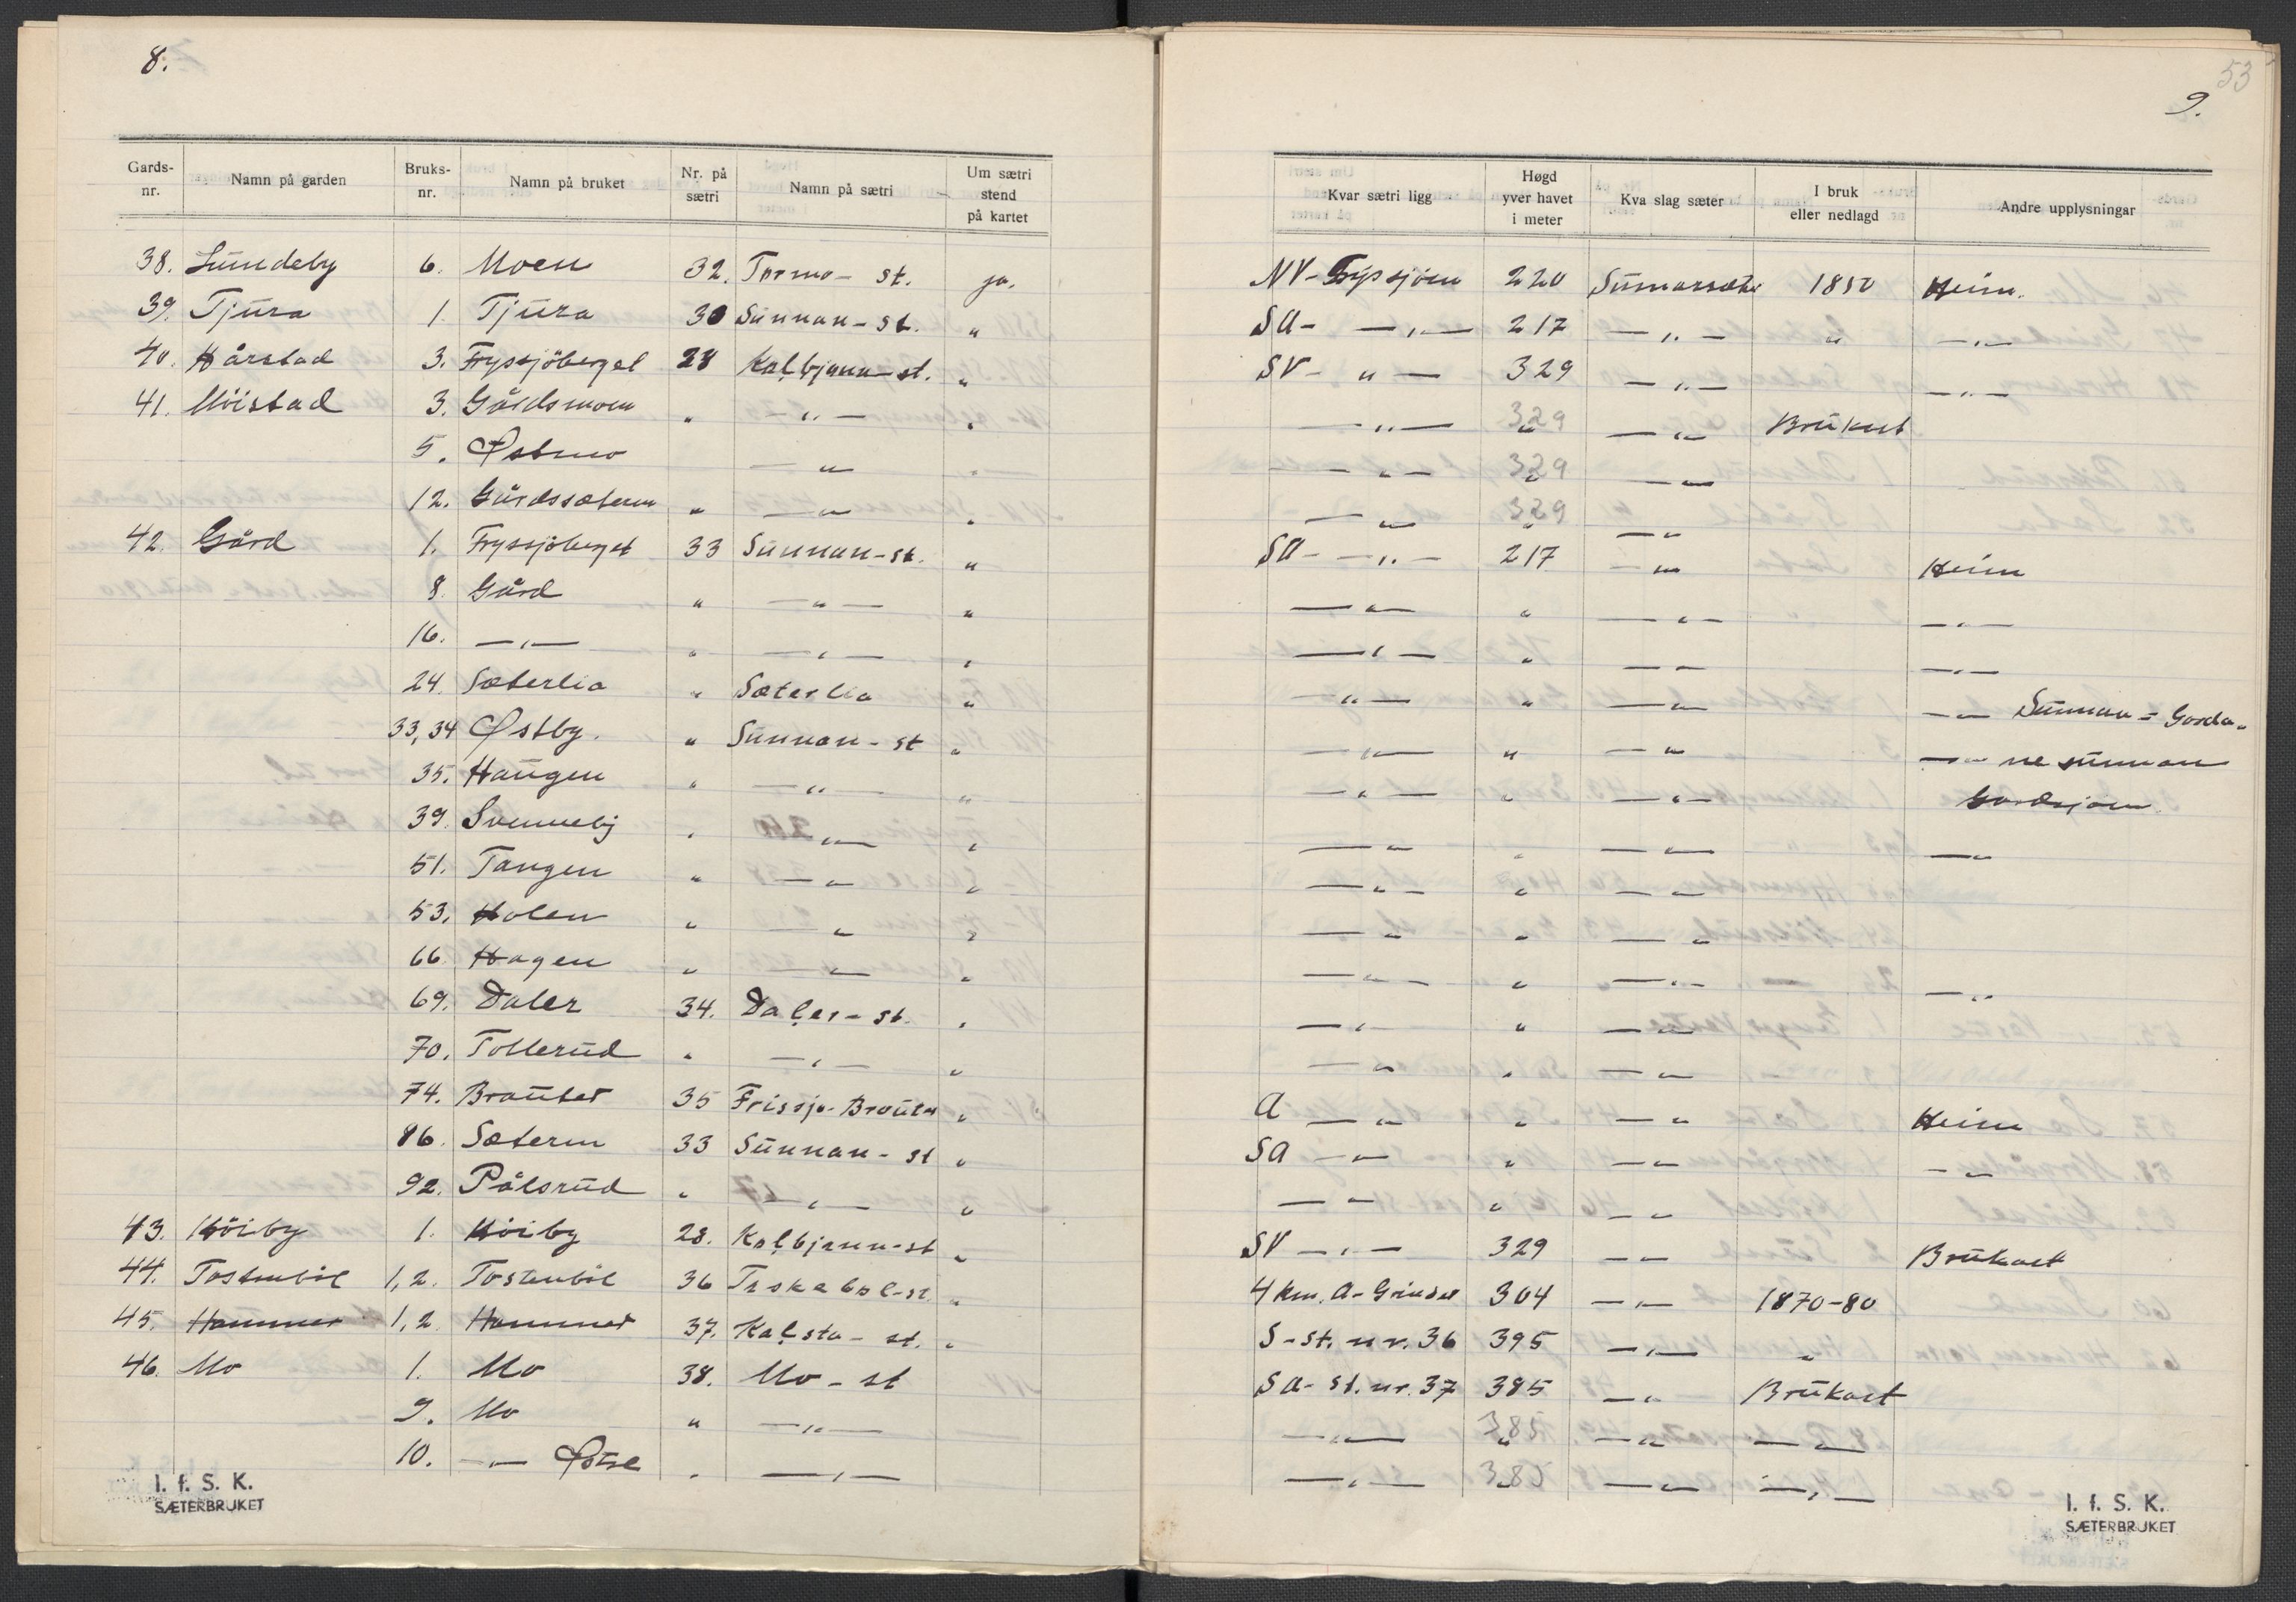 8.
Gards-nr. Namn på garden Bruks-nr. Namn på bruket Nr. på sætri Namn på sætri Um sætri stend på kartet
38. Lundeby 6. Moen 32. Tormo-st. ja.
39. Tjura 1. Tjura 30 Sunnan-st. "
40. Hårstad 3. Fryssjöberget 28 Kolbjønn-st. "
41. Möistad 3. Gårdsmoen " —"— "
5. Østmo —"— "
12. Gårdssæteren " —"— "
42. Gård 1. Fryssjöberget 33 Sunnan-st. "
8. Gård " —"— "
16. —"— " —"— "
24. Sæterlia " Sæterlia "
33,34 Østby. " Sunnan-st "
35. Haugen " —"— "
39. Svenneby " —"— "
51. Tangen " —"— "
53. Holen " —"— "
66. Hagen " —"— "
69. Daler 34. Daler-st. "
70. Tollerud " —"— "
74. Bråtet 35 "
86. Sæteren 33 Sunnan-st "
92. Pålsrud " —"— "
43. Höiby 1. Höiby 28. Kolbjønn-st "
44. Tostenböl 1,2. Tostenböl 36 "
45. Hammer 1,2. Hammer 37. Kalsta-st. "
46. Mo 1. Mo 38. Mo-st
9. Mo " —"—
10. —"— Østre " —"—
I. f. S. K.
SÆTERBRUKET
53
9.
Kvar sætri ligg Høgd yver havet i meter Kva slag sæter I bruk eller nedlagd Andre upplysningar
NV-Fryssjøen 220 Sumarsæter 1850 Heim.
SA- —"— 217 —"— " —"—
SV- —"— 329 —"— —"—
—"— 329 —"— Brukast
—"— 329 —"—
—"— 329 —"—
SA- —"— 217 —"— Heim
—"— " —"— —"—
—"— " —"— —"—
—"— " —"— —"— Sunnan = Garda-
—"— " —"— —"— ne sunnan
—"— " —"— Gardsjøen.
—"— " —"— —"—
—"— " —"—
—"— " —"—
—"— " —"— —"—
—"— " —"—
—"— " —"—
A —"— " —"— Heim
SA —"— " —"— —"—
—"— " —"—
SV —"— 329 —"— Brukast
4 km. A-Grinder 304 —"— 1870-80
S-st. nr. 36 395 —"— "
SA-st. nr. 37 385 —"— Brukast
—"— 385 —"— —"—
—"— 385 —"— —"—
I. f. S. K.
SÆTERBRUKET